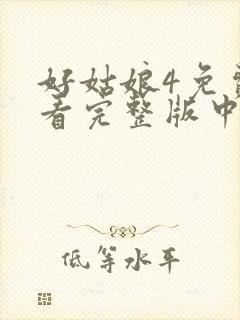 好姑娘4免费
看完整版中
低等水平